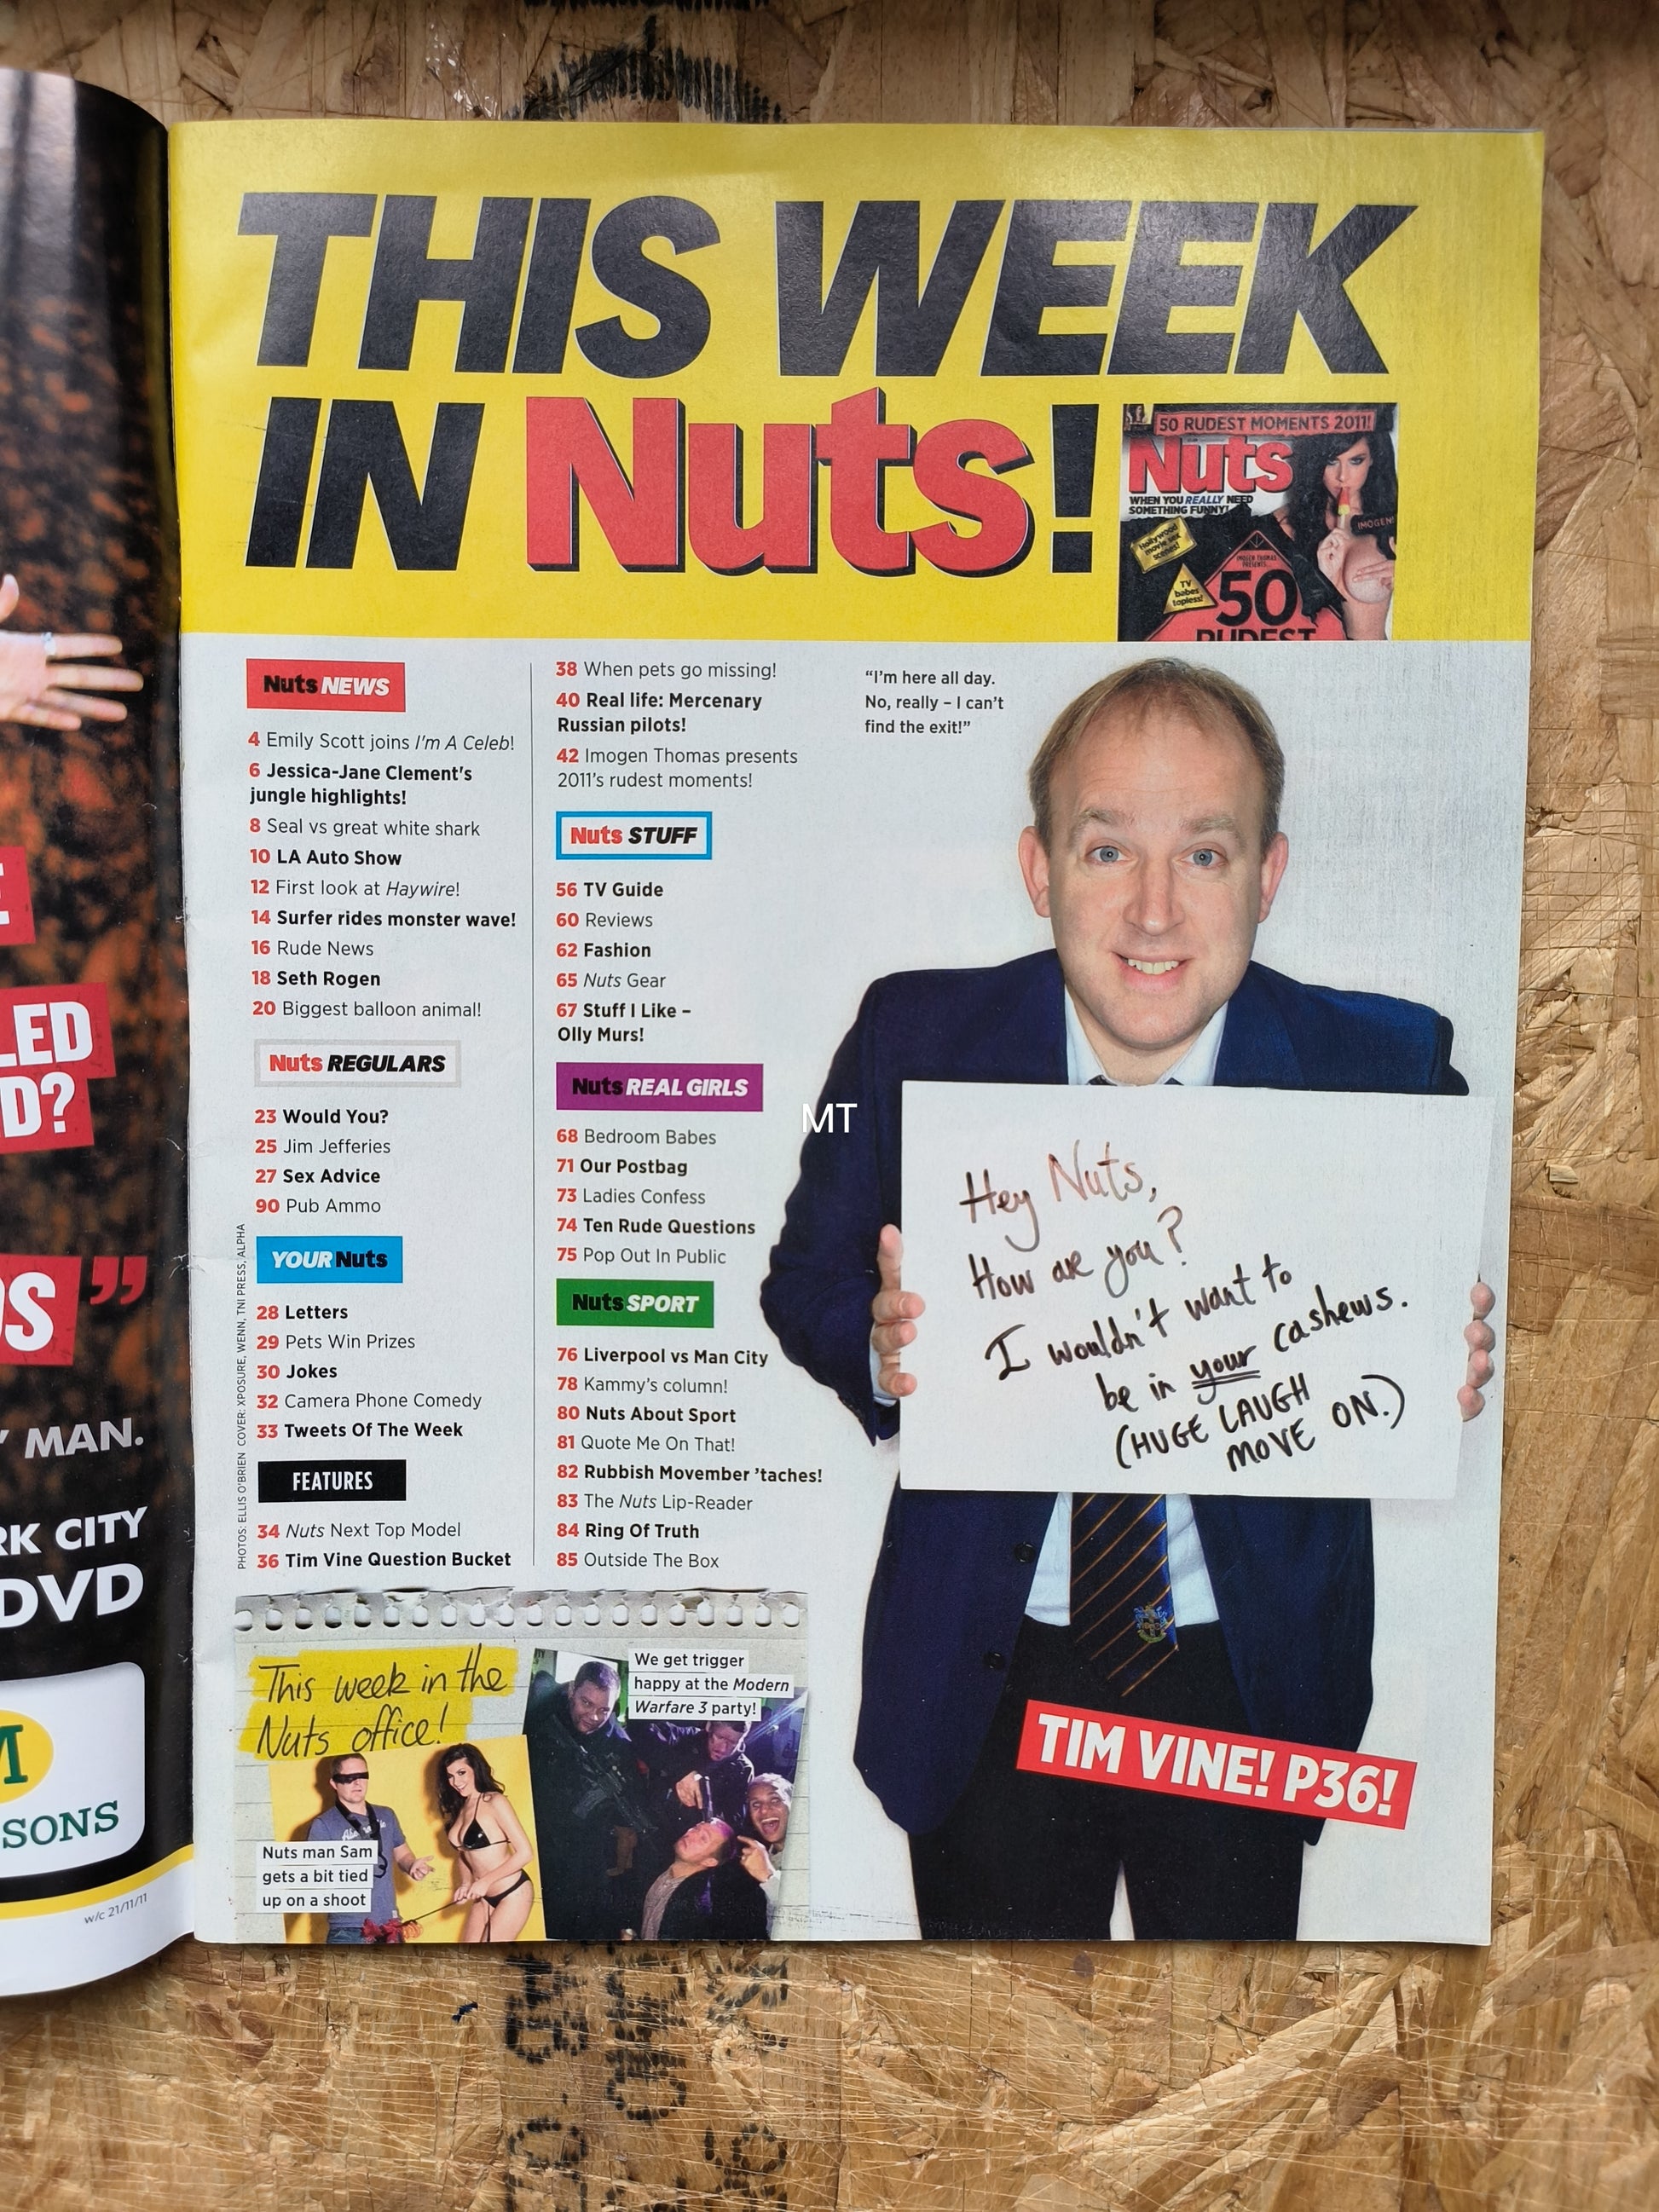 THIS WEEK
IN Nuts!
50 RUDEST MOMENTS 2011!
Nuts
WHEN YOU REALLY NEED
SOMETHING FUNNY!
IMOGEN!
Hollywood
movie sex
scenes!
TV
babes
topless!
IMOGEN THOMAS
PRESENTS...
50
RUDEST
Nuts NEWS
4 Emily Scott joins I'm A Celeb!
6 Jessica-Jane Clement's
jungle highlights!
8 Seal vs great white shark
10 LA Auto Show
12 First look at Haywire!
14 Surfer rides monster wave!
16 Rude News
18 Seth Rogen
20 Biggest balloon animal!
Nuts REGULARS
23 Would You?
25 Jim Jefferies
27 Sex Advice
90 Pub Ammo
YOUR Nuts
28 Letters
29 Pets Win Prizes
30 Jokes
32 Camera Phone Comedy
33 Tweets Of The Week
FEATURES
34 Nuts Next Top Model
36 Tim Vine Question Bucket
PHOTOS: ELLIS O'BRIEN COVER: XPOSURE, WENN, TNI PRESS, ALPHA
38 When pets go missing!
40 Real life: Mercenary
Russian pilots!
42 Imogen Thomas presents
2011's rudest moments!
Nuts STUFF
56 TV Guide
60 Reviews
62 Fashion
65 Nuts Gear
67 Stuff I Like –
Olly Murs!
Nuts REAL GIRLS
68 Bedroom Babes
71 Our Postbag
73 Ladies Confess
74 Ten Rude Questions
75 Pop Out In Public
Nuts SPORT
76 Liverpool vs Man City
78 Kammy's column!
80 Nuts About Sport
81 Quote Me On That!
82 Rubbish Movember 'taches!
83 The Nuts Lip-Reader
84 Ring Of Truth
85 Outside The Box
"I'm here all day.
No, really – I can't
find the exit!"
MT
Hey Nuts,
How are you?
I wouldn't want to
be in your cashews.
(HUGE LAUGH
MOVE ON.)
TIM VINE! P36!
This week in the
Nuts office!
We get trigger
happy at the Modern
Warfare 3 party!
Nuts man Sam
gets a bit tied
up on a shoot
LED
D?
OS"
' MAN.
RK CITY
DVD
M
SONS
w/c 21/11/11